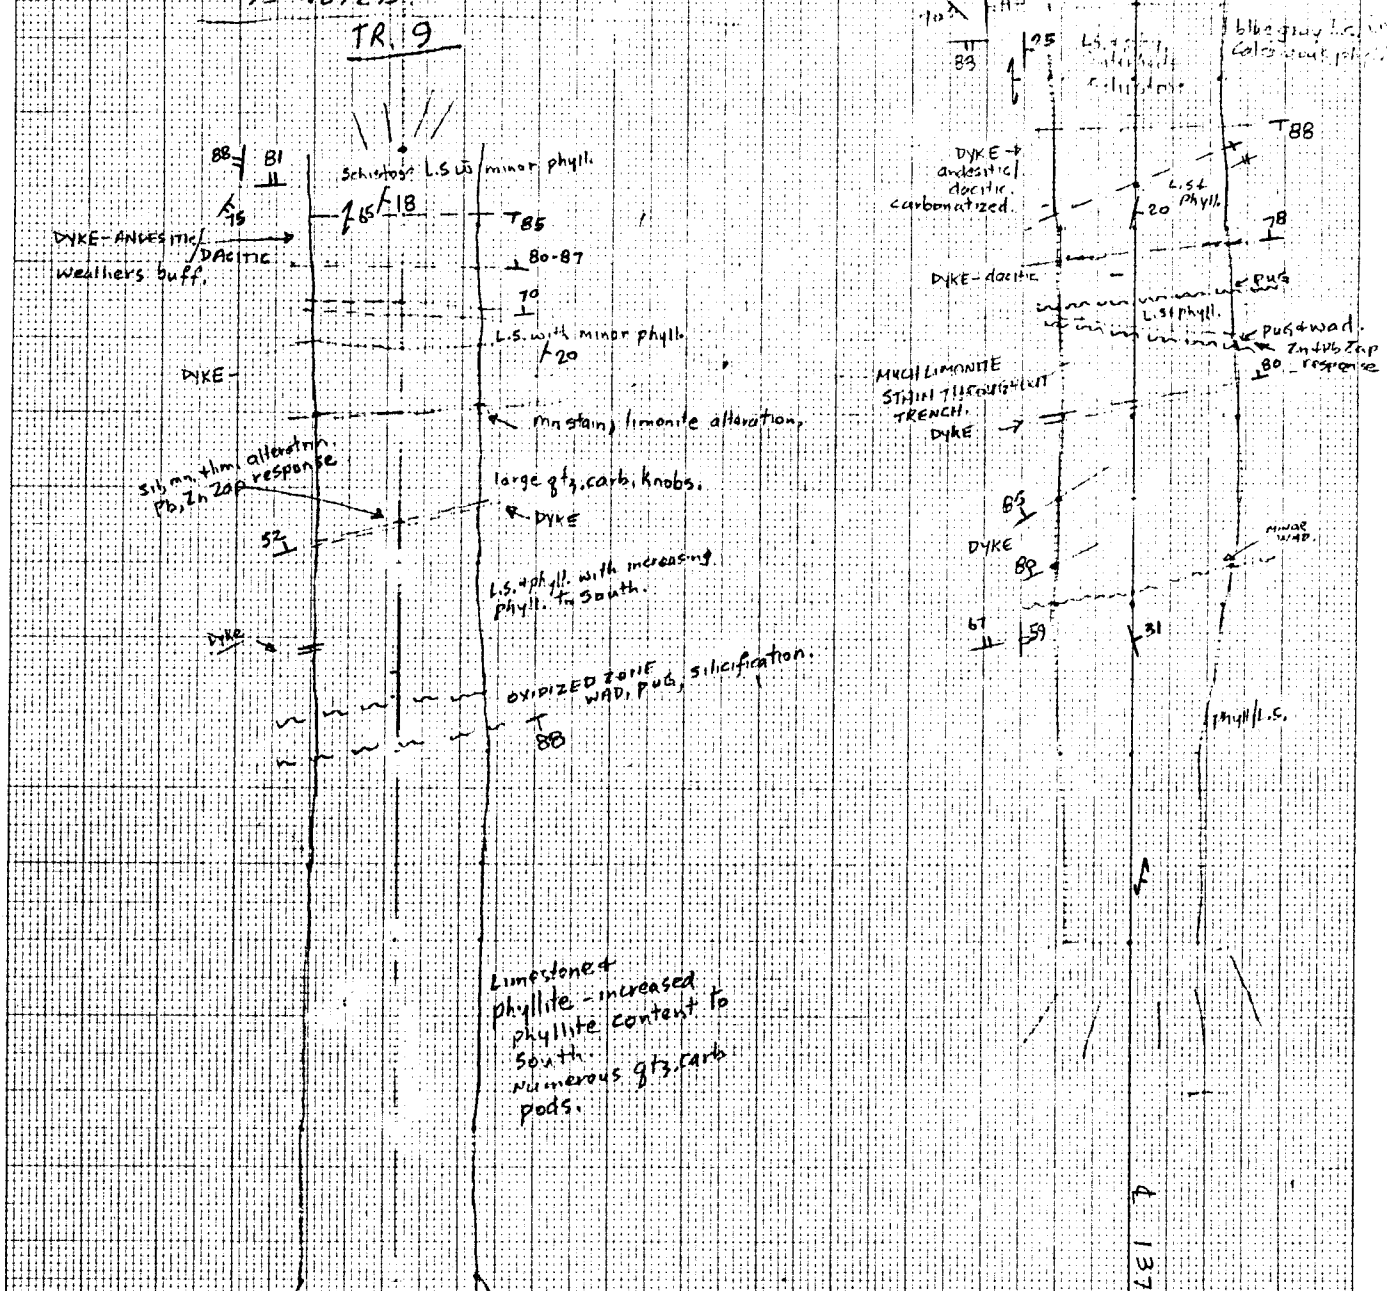 TR. 9
88
81
Schistose L.S. w minor phyll.
75
65
18
85
DYKE-ANDESITIC/
DACITIC
weathers buff.
80-87
70
L.S. with minor phyll.
20
DYKE
mn stain, limonite alteration,
Pb, Zn Zap response
large qtz. carb. knobs.
DYKE
52
L.S. + phyll. with increasing
phyll. to South.
Dyke
OXIDIZED ZONE
WAD, PUG, silicification.
88
Limestone +
phyllite - increased
phyllite content to
South.
Numerous qtz. carb
pods.
70
83
25
88
DYKE
andesitic/
dacitic.
carbonatized.
L.S. +
Phyll.
20
78
DYKE-dacitic
PUG
L.S + phyll.
pug + wad.
Zn + Pb Zap
response
80
MUCH LIMONITE
STAIN THROUGHOUT
TRENCH.
DYKE
85
DYKE
89
MINOR
WAD.
67
59
31
phyll/L.S.
137